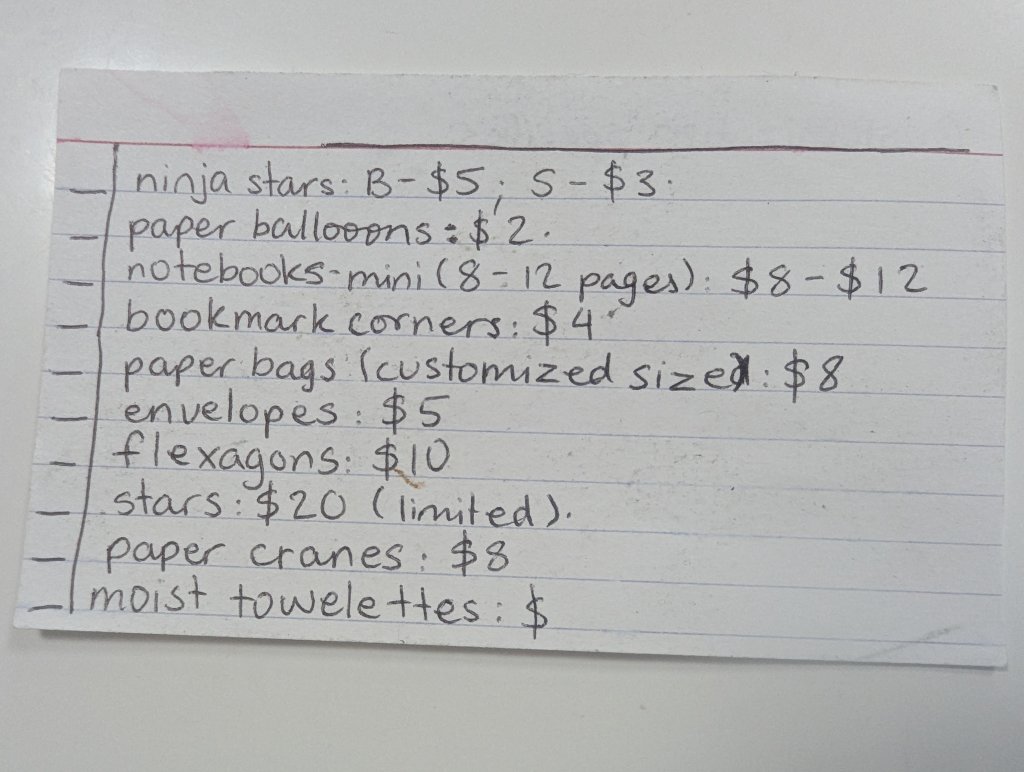 ninja stars: B - $5; S - $3.
paper ballooons: $2.
notebooks-mini (8-12 pages): $8 - $12
bookmark corners: $4
paper bags (customized size): $8
envelopes: $5
flexagons: $10
stars: $20 (limited).
paper cranes: $8
moist towelettes: $